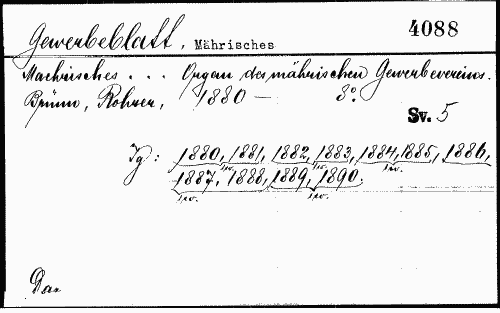 4088
Gewerbeblatt, Mährisches
Maehrisches . . . Organ des mährischen Gewerbevereins.
Brünn, Rohrer, 1880 — 8°.
Sv. 5
Jg: 1880, 1881, 1882, 1883, 1884, 1885, 1886,
1sv. 1sv. 1sv.
1887, 1888, 1889, 1890.
1sv. 1sv.
Dar